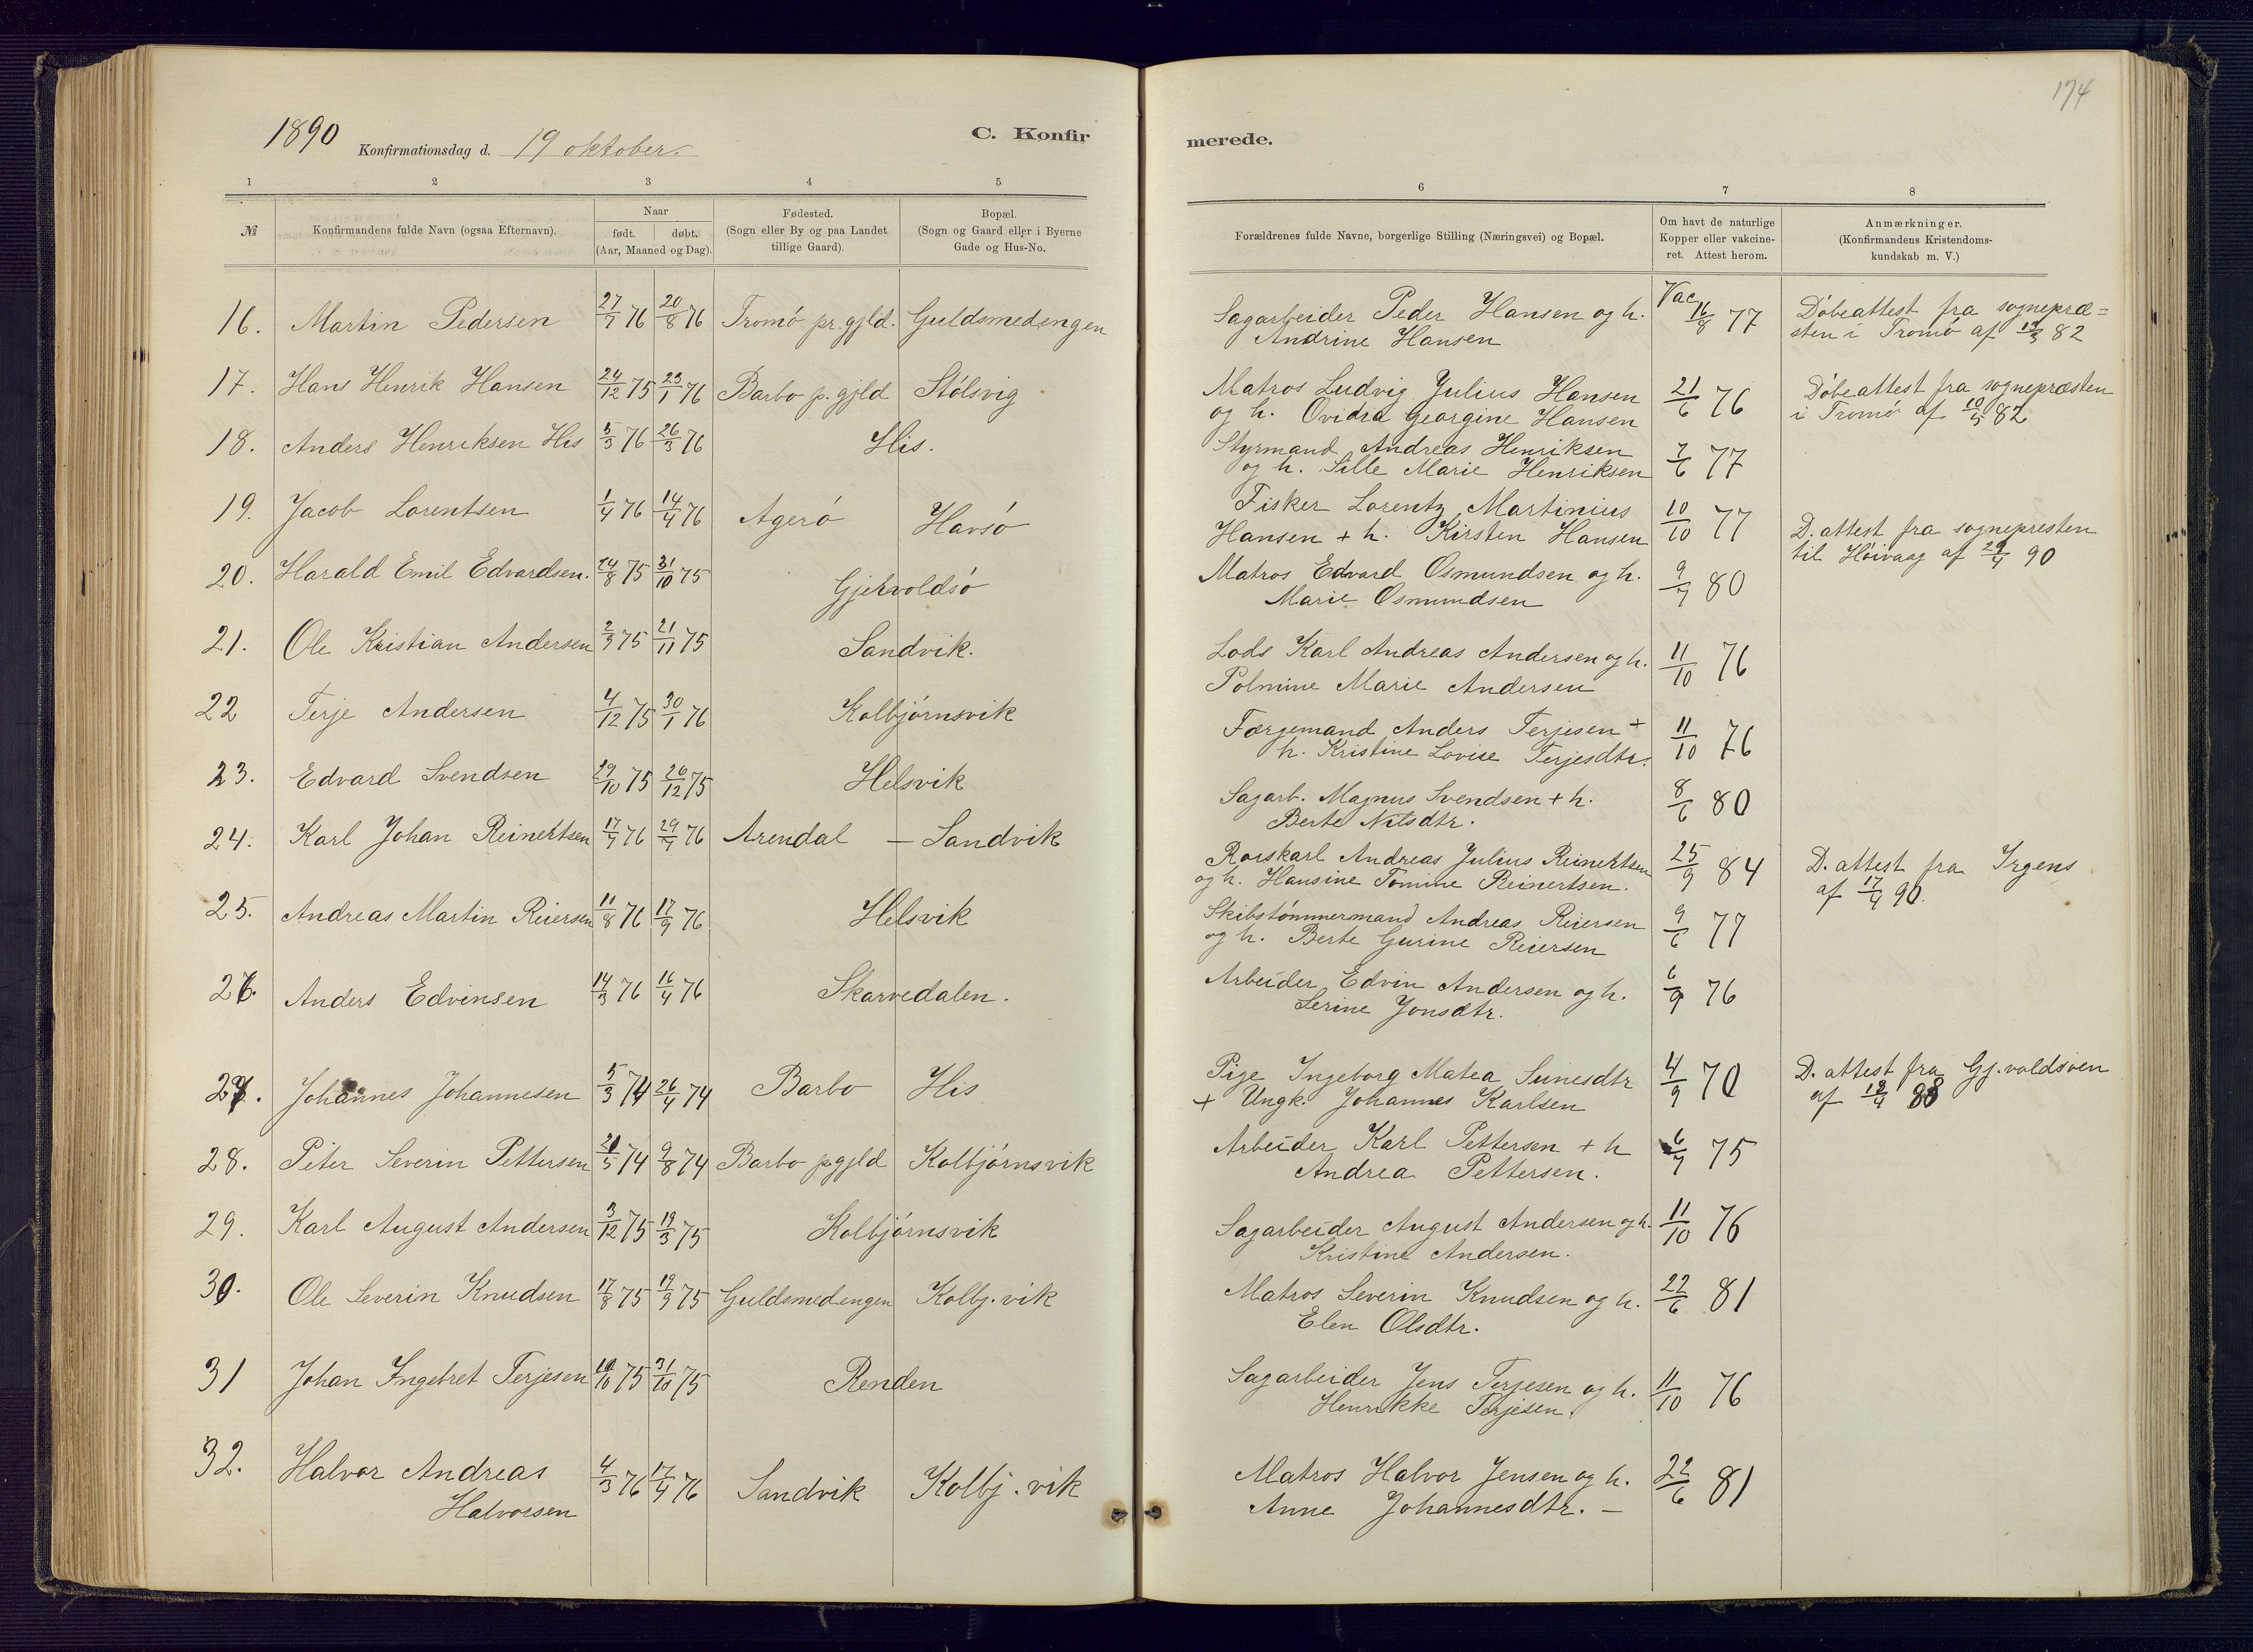 174
1890 Konfirmationsdag d. 19 oktober.
C. Konfirmerede.
1 2 3 4 5 6 7 8
№
Konfirmandens fulde Navn (ogsaa Efternavn).
Naar
født. døbt.
(Aar, Maaned og Dag).
Fødested.
(Sogn eller By og paa Landet
tillige Gaard).
Bopæl.
(Sogn og Gaard eller i Byerne
Gade og Hus-No.
Forældrenes fulde Navne, borgerlige Stilling (Næringsvei) og Bopæl.
Om havt de naturlige
Kopper eller vakcine-
ret. Attest herom.
Anmærkninger.
(Konfirmandens Kristendoms-
kundskab m. V.)
16. Martin Pedersen 27/7 76 20/8 76 Tromø pr.gjld. Guldsmedengen
Sagarbeider Peder Hansen og h. Vac 16/8 77 Døbeattest fra sognepræ=
Andrine Hansen sten i Tromø af 82
17. Hans Henrik Hansen 24/12 75 23/1 76 Barbo p.gjld Stølsvig
Matros Ludvig Julius Hansen 21/6 76 Døbeattest fra sognepræsten
og h. Ovidra Georgine Hansen i Tromø af 10/5 82
18. Anders Henriksen His 5/3 76 26/3 76 His.
Styrmand Andreas Henriksen 7/6 77
og h. Sille Marie Henriksen
19. Jacob Lorentsen 1/4 76 14/4 76 Agerø Havsø
Fisker Lorentz Martinius 10/10 77
Hansen + h. Kirsten Hansen D. attest fra sognepresten
til Høivaag af 29/4 90
20. Harald Emil Edvardsen. 24/8 75 31/10 75 Gjervoldsø
Matros Edvard Osmundsen og h. 9/7 80
Marie Osmundsen
21. Ole Kristian Andersen 2/9 75 21/11 75 Sandvik.
Lods Karl Andreas Andersen og h. 11/10 76
Polmine Marie Andersen
22 Terje Andersen 4/12 75 30/1 76 Kolbjørnsvik
Færgemand Anders Terjesen + 11/10 76
h. Kristine Lovise Terjesdtr.
23. Edvard Svendsen 29/10 75 26/12 75 Helsvik
Sagarb. Magnus Svendsen + h. 8/6 80
Berte Nilsdtr.
24. Karl Johan Reinertsen 17/7 76 29/7 76 Arendal – Sandvik
Rorskarl Andreas Julius Reinertsen 25/9 84 D. attest fra Irgens
og h. Hansine Tomine Reinertsen. af 17/4 90.
25. Andreas Martin Reiersen 11/8 76 17/9 76 Helsvik
Skibstømmermand Andreas Reiersen 9/6 77
og h. Berte Gurine Reiersen
26. Anders Edvinsen 14/3 76 16/4 76 Skarvedalen.
Arbeider Edvin Andersen og h. 6/9 76
Serine Jonsdtr.
27. Johannes Johannesen 5/3 74 26/4 74 Barbo His
Pige Ingeborg Matea Sunesdtr 4/9 70 D. attest fra Gj.voldsøen
+ Ungk. Johannes Karlsen af 88
28. Peter Severin Pettersen 74 9/8 74 Barbo p.gjld Kolbjørnsvik
Arbeider Karl Pettersen + h 6/7 75
Andrea Pettersen.
29. Karl August Andersen 3/12 75 75 Kolbjørnsvik
Sagarbeider August Andersen og h. 11/10 76
Kristine Andersen.
30. Ole Severin Knudsen 17/8 75 19/9 75 Guldsmedengen Kolbj.vik
Matros Severin Knudsen og h. 22/6 81
Elen Olsdtr.
31 Johan Ingebret Terjesen 75 31/10 75 Renden
Sagarbeider Jens Terjesen og h. 11/10 76
Henrikke Terjesen.
32. Halvor Andreas 4/3 76 17/4 76 Sandvik Kolbj.vik
Halvorsen
Matros Halvor Jensen og h. 22/6 81
Anne Johannesdtr. –